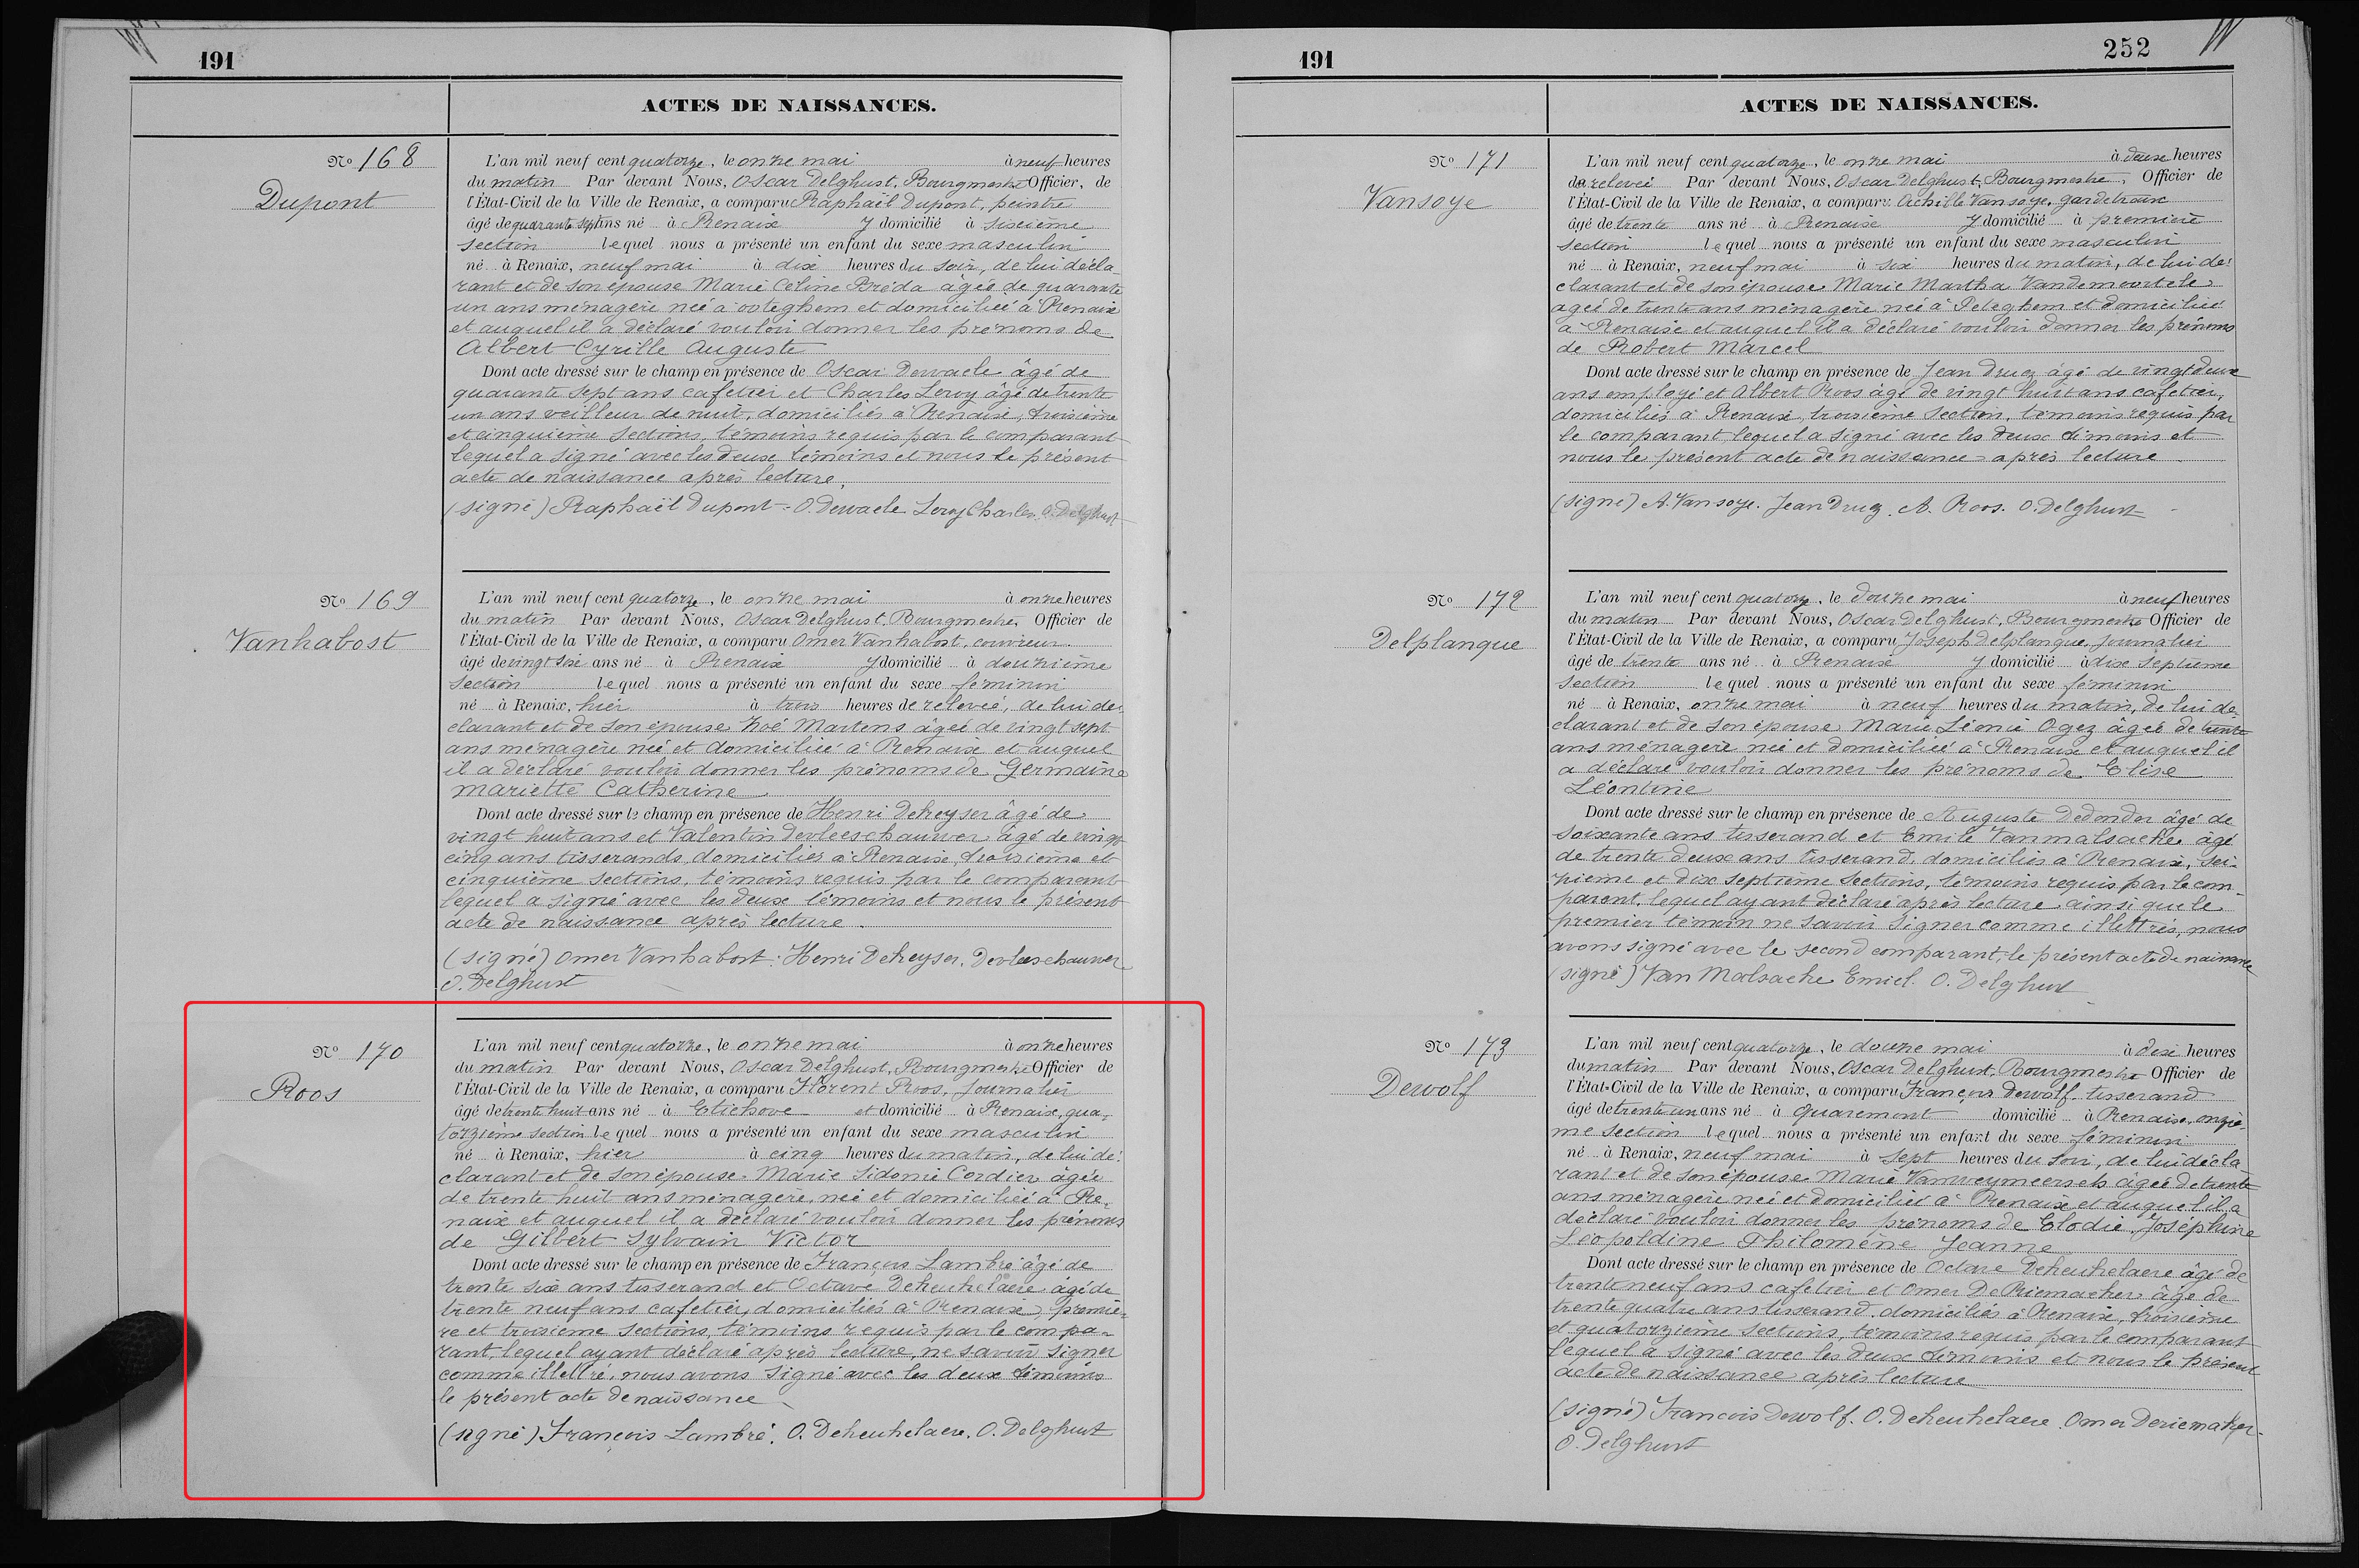 191
ACTES DE NAISSANCES.
No 168
Dupont
L'an mil neuf cent quatorze, le onze mai à neuf heures
du matin Par devant Nous, Oscar Delghust, Bourgmestre Officier, de
l'État-Civil de la Ville de Renaix, a comparu Raphaël Dupont, peintre
âgé de quarante sept ans né à Renaix y domicilié à sixième
section lequel nous a présenté un enfant du sexe masculin
né à Renaix, neuf mai à dix heures du soir, de lui décla-
rant et de son épouse Marie Céline Bréda âgée de quarante
un ans ménagère née à Ooteghem et domiciliée à Renaix
et auquel il a déclaré vouloir donner les prénoms de
Albert Cyrille Auguste
Dont acte dressé sur le champ en présence de Oscar Dewaele âgé de
quarante sept ans cafetier et Charles Leroy âgé de trente
un ans veilleur de nuit, domiciliés à Renaix, troisième
et cinquième sections, témoins requis par le comparant
lequel a signé avec les deux témoins et nous le présent
acte de naissance après lecture.
(signé) Raphaël Dupont - O. Dewaele Leroy Charles O. Delghust
No 169
Vanhabost
L'an mil neuf cent quatorze, le onze mai à onze heures
du matin Par devant Nous, Oscar Delghust, Bourgmestre, Officier de
l'État-Civil de la Ville de Renaix, a comparu Omer Vanhabost, couvreur.
âgé de vingt six ans né à Renaix y domicilié à douzième
section lequel nous a présenté un enfant du sexe féminin
né à Renaix, hier à trois heures de relevée, de lui dé-
clarant et de son épouse Zoé Martens âgée de vingt sept
ans ménagère née et domiciliée à Renaix et auquel
il a déclaré vouloir donner les prénoms de Germaine
Mariette Catherine
Dont acte dressé sur le champ en présence de Henri Dekeyser âgé de
vingt huit ans et Valentin Devleeschauwer âgé de vingt
cinq ans tisserands, domiciliés à Renaix, troisième et
cinquième sections, témoins requis par le comparant
lequel a signé avec les deux témoins et nous le présent
acte de naissance après lecture.
(signé) Omer Vanhabost. Henri Dekeyser. Devleeschauwer
O. Delghust
No 170
Roos
L'an mil neuf cent quatorze, le onze mai à onze heures
du matin Par devant Nous, Oscar Delghust, Bourgmestre Officier de
l'État-Civil de la Ville de Renaix, a comparu Florent Roos, journalier
âgé de trente huit ans né à Etichove et domicilié à Renaix, qua-
torzième section lequel nous a présenté un enfant du sexe masculin
né à Renaix, hier à cinq heures du matin, de lui dé-
clarant et de son épouse Marie Sidonie Cordier âgée
de trente huit ans ménagère, née et domiciliée à Re-
naix et auquel il a déclaré vouloir donner les prénoms
de Gilbert Sylvain Victor
Dont acte dressé sur le champ en présence de François Lambré âgé de
trente six ans tisserand et Octave Dekeukelaere âgé de
trente neuf ans cafetier, domiciliés à Renaix, premiè-
re et troisième sections, témoins requis par le compa-
rant, lequel ayant déclaré après lecture, ne savoir signer
comme illettré, nous avons signé avec les deux témoins
le présent acte de naissance
(signé) François Lambré. O. Dekeukelaere. O. Delghust
191
252
ACTES DE NAISSANCES.
No 171
Vansoye
L'an mil neuf cent quatorze, le onze mai à deux heures
de relevée Par devant Nous, Oscar Delghust, Bourgmestre, Officier de
l'État-Civil de la Ville de Renaix, a comparu Achille Vansoye, gardetraix
âgé de trente ans né à Renaix y domicilié à première
section lequel nous a présenté un enfant du sexe masculin
né à Renaix, neuf mai à six heures du matin, de lui dé-
clarant et de son épouse Marie Martha Vandemoortele
âgée de trente ans ménagère née à Peteghem et domiciliée
à Renaix et auquel il a déclaré vouloir donner les prénoms
de Robert Marcel
Dont acte dressé sur le champ en présence de Jean Druez âgé de vingt deux
ans employé et Albert Roos âgé de vingt huit ans cafetier,
domiciliés à Renaix, troisième section, témoins requis par
le comparant lequel a signé avec les deux témoins et
nous le présent acte de naissance après lecture
(signé) A. Vansoye. Jean Druez. A. Roos. O. Delghust
No 172
Delplanque
L'an mil neuf cent quatorze, le douze mai à neuf heures
du matin Par devant Nous, Oscar Delghust, Bourgmestre Officier de
l'État-Civil de la Ville de Renaix, a comparu Joseph Delplanque, journalier
âgé de trente ans né à Renaix y domicilié à dix septième
section lequel nous a présenté un enfant du sexe féminin
né à Renaix, onze mai à neuf heures du matin, de lui dé-
clarant et de son épouse Marie Léonie Ogez âgée de trente
ans ménagère née et domiciliée à Renaix et auquel il
a déclaré vouloir donner les prénoms de Elise
Léontine
Dont acte dressé sur le champ en présence de Auguste Dedonder âgé de
soixante ans tisserand et Emile Vanmalsacke âgé
de trente deux ans tisserand, domiciliés à Renaix, sei-
zième et dix septième sections, témoins requis par le com-
parant, lequel ayant déclaré après lecture ainsi que le
premier témoin ne savoir signer comme illettrés, nous
avons signé avec le second comparant, le présent acte de naissance
(signé) Van Malsacke Emiel. O. Delghust
No 173
Dewolf
L'an mil neuf cent quatorze, le douze mai à dix heures
du matin Par devant Nous, Oscar Delghust, Bourgmestre Officier de
l'État-Civil de la Ville de Renaix, a comparu François Dewolf, tisserand
âgé de trente un ans né à Quaremont domicilié à Renaix, onziè-
me section lequel nous a présenté un enfant du sexe féminin
né à Renaix, neuf mai à sept heures du soir, de lui décla-
rant et de son épouse Marie Vanweymeersch âgée de trente
ans ménagère née et domiciliée à Renaix et auquel il a
déclaré vouloir donner les prénoms de Elodie Joséphine
Léopoldine Philomène Jeanne
Dont acte dressé sur le champ en présence de Octave Dekeukelaere âgé de
trente neuf ans cafetier et Omer De Riemacker âgé de
trente quatre ans tisserand, domiciliés à Renaix, troisième
et quatorzième sections, témoins requis par le comparant
lequel a signé avec les deux témoins et nous le présent
acte de naissance après lecture
(signé) François Dewolf. O. Dekeukelaere. Omer Deriemaker.
O. Delghust